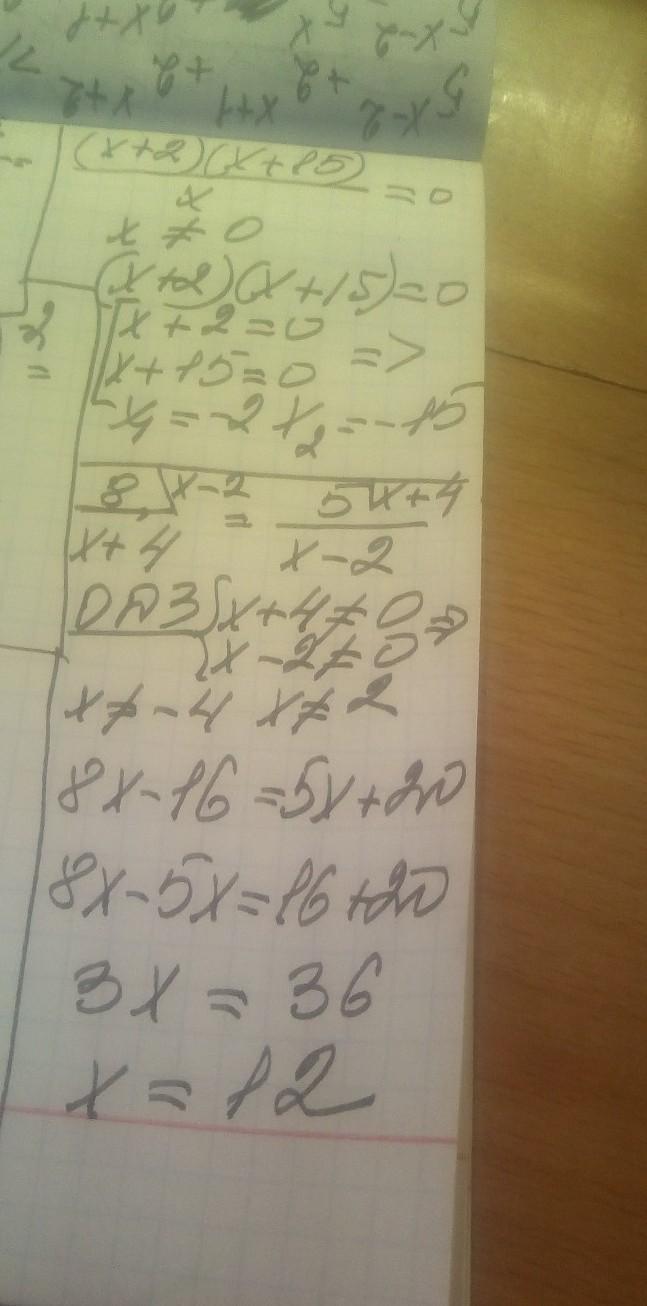 (x+2)(x+15)
x
= 0
x ≠ 0
(x+2)(x+15)=0
[x+2=0
x+15=0 =>
x₁=-2 x₂=-15
8\x-2 = 5\x+4
x+4 x-2
ОДЗ {x+4≠0 =>
{x-2≠0
x≠-4 x≠2
8x-16=5x+20
8x-5x=16+20
3x = 36
x = 12
2
=